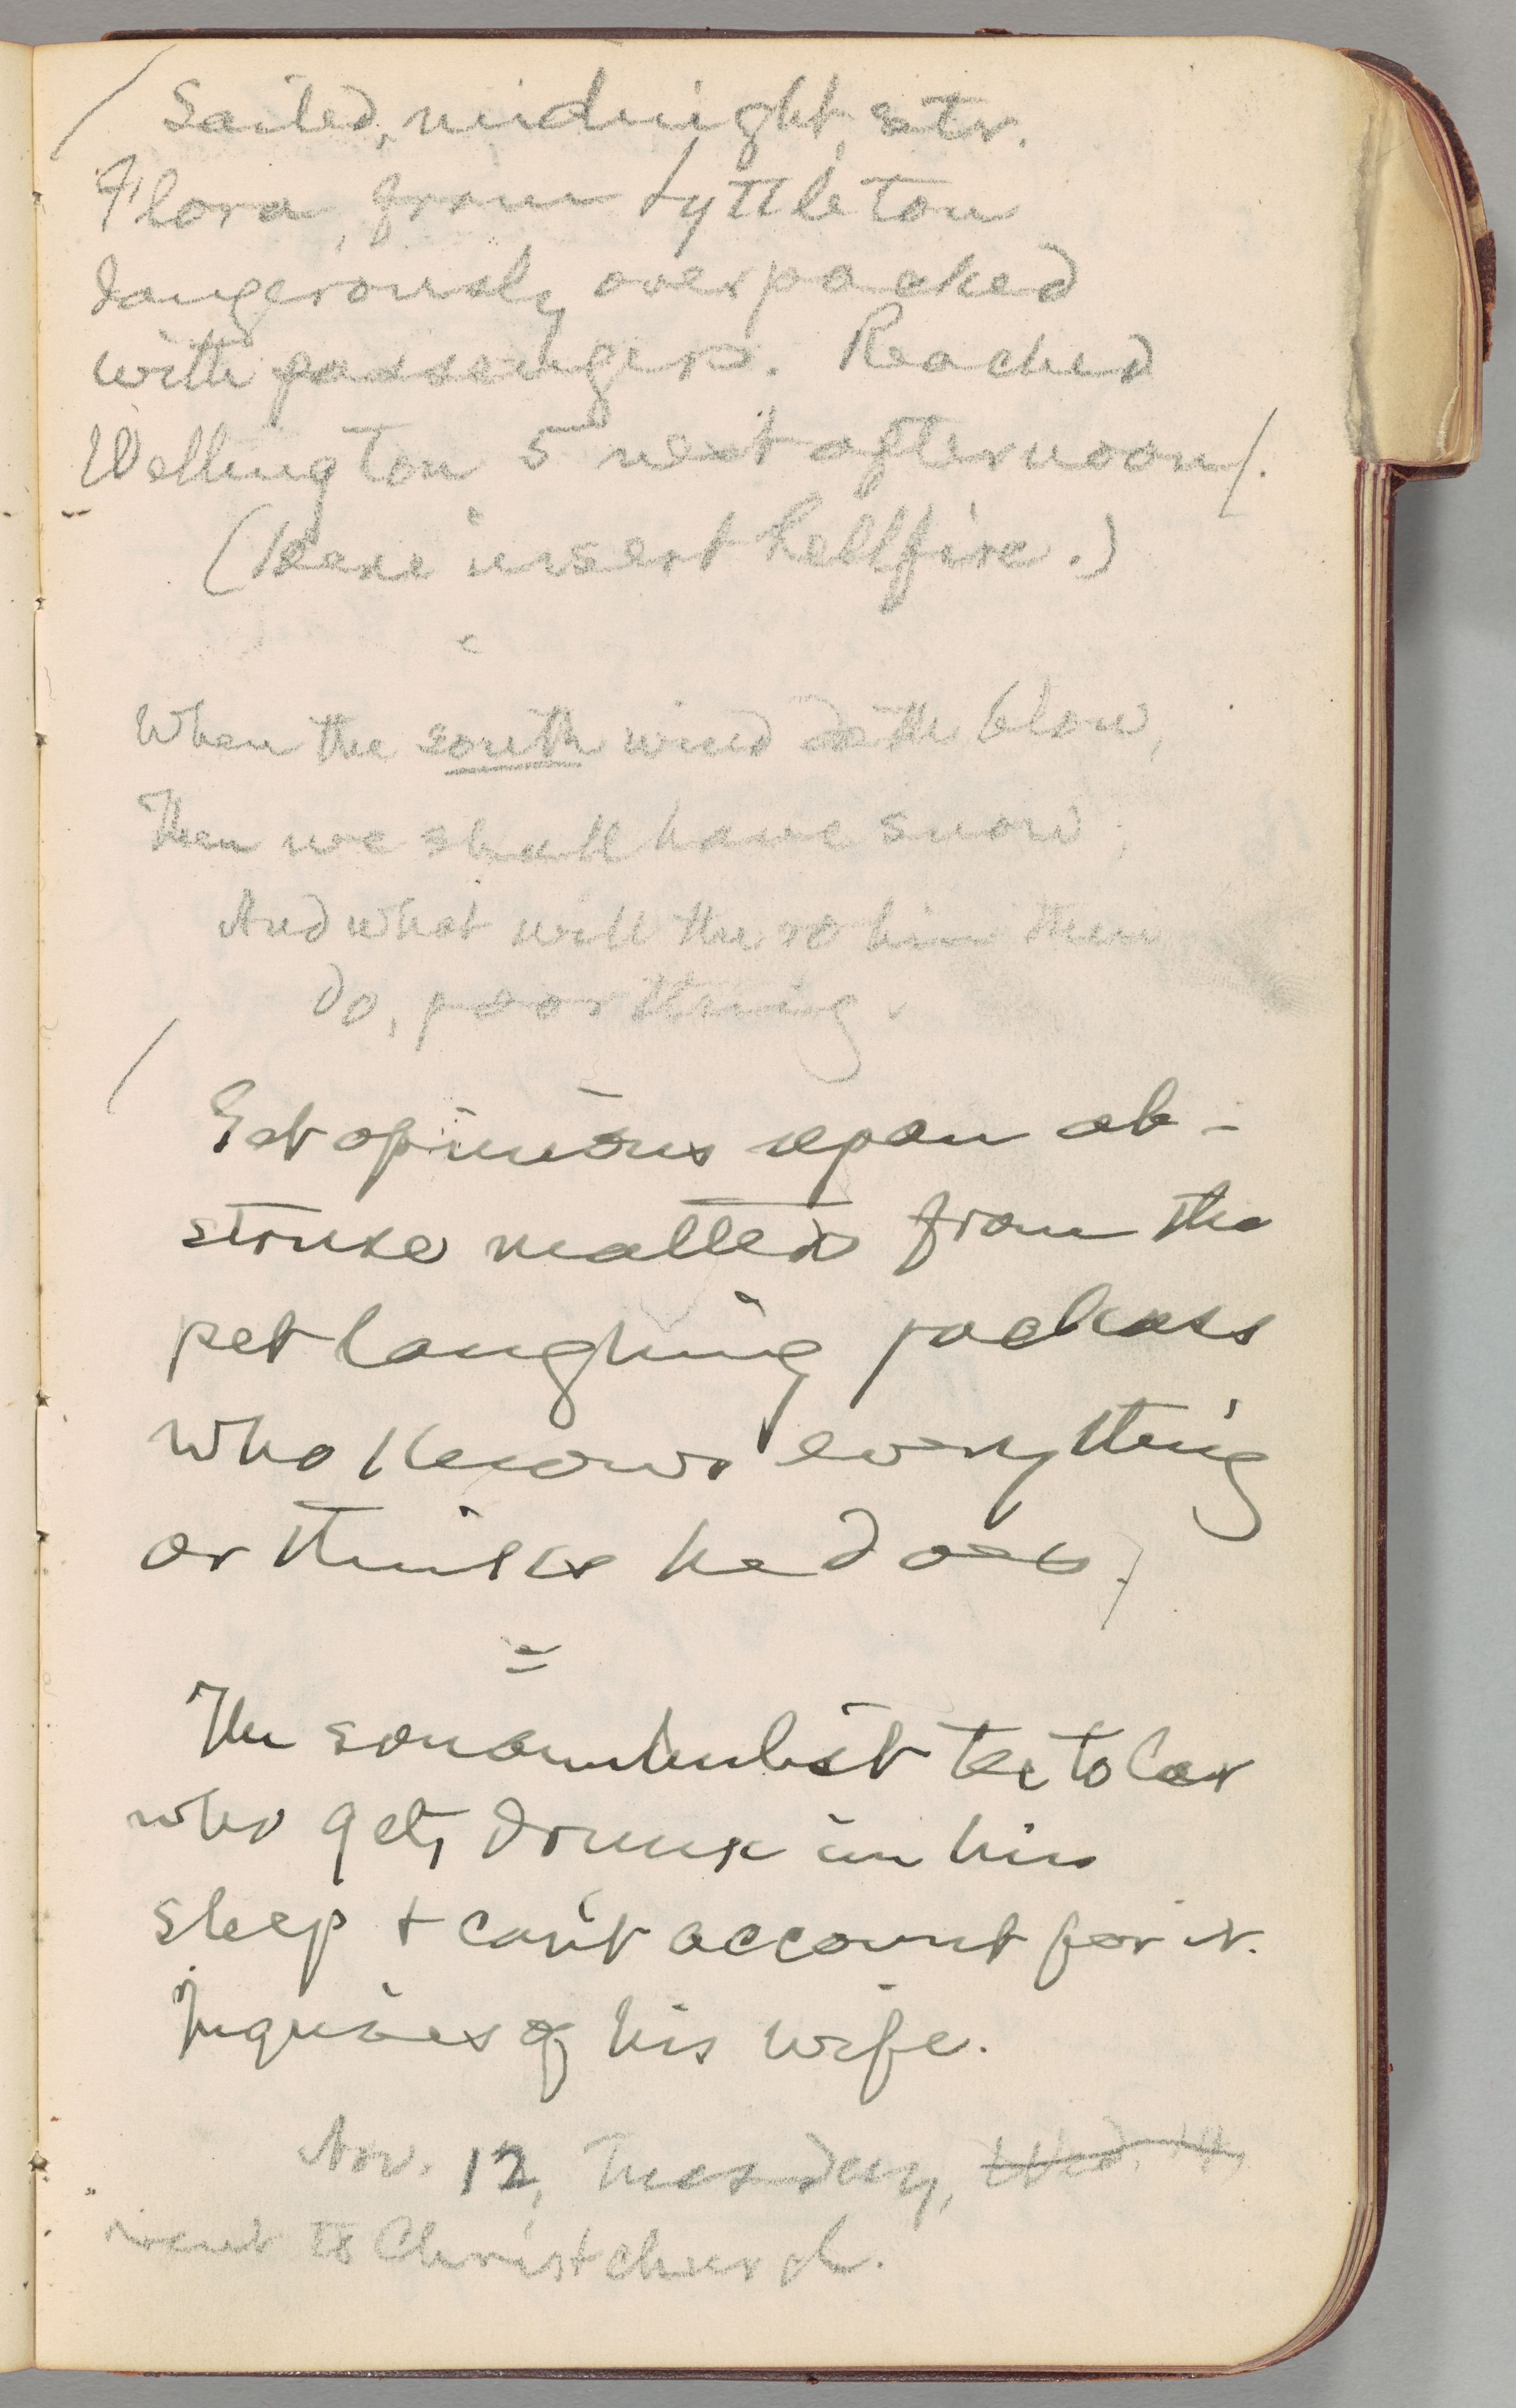 Sailed, midnight, str.
Flora, from Lyttleton
dangerously overpacked
with passengers. Reached
Wellington 5 next afternoon.
(Here insert hellfire.)
When the south wind doth blow,
Then we shall have snow,
And what will the robin then
do, poor thing.
Get opinions upon ab-
struse matters from the
pet laughing jackass
who knows everything
or thinks he does.
The sonambulist tetotaler
who gets drunk in his
sleep + can't account for it.
Inquires of his wife.
Nov. 12, Tuesday,
went to Christchurch.